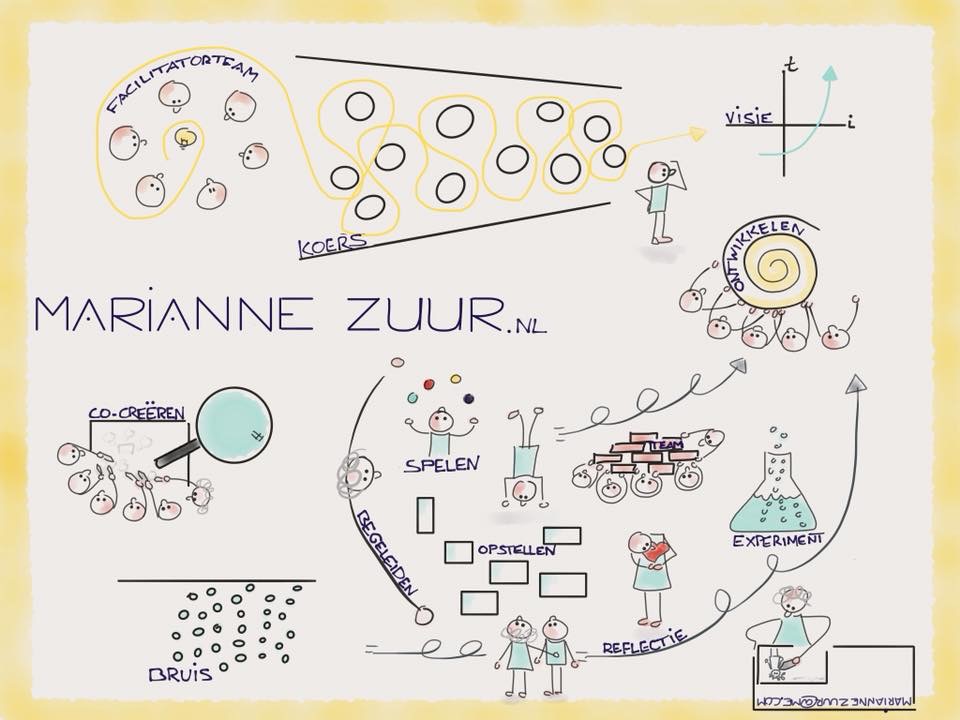 FACILITATORTEAM
t
VISIE
i
KOERS
ONTWIKKELEN
MARIANNE ZUUR.NL
CO-CREËREN
TEAM
SPELEN
BEGELEIDEN
EXPERIMENT
OPSTELLEN
REFLECTIE
BRUIS
MARIANNEZUUR@ME.COM